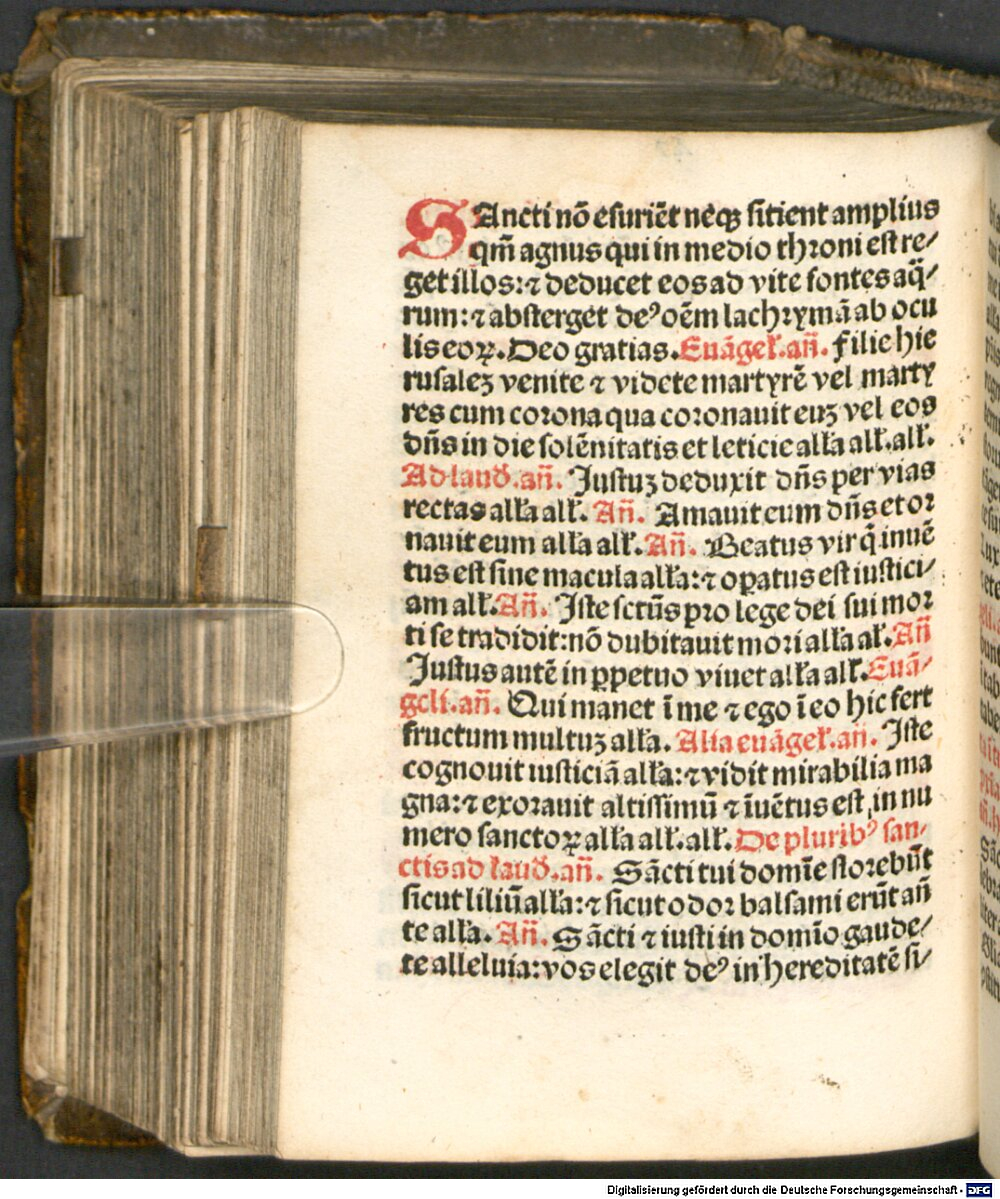 SAncti nō esuriēt neqȝ sitient amplius
qm̄ agnus qui in medio throni est re/
get illos: ⁊ deducet eos ad vite fontes aq̄/
rum: ⁊ absterget deꝰ oēm lachrymā ab ocu
lis eoꝝ. Deo gratias. Euāgeł. añ. Filie hie
rusaleȝ venite ⁊ videte martyrē vel marty
res cum corona qua coronauit euȝ vel eos
dñs in die solēnitatis et leticie ałła ałł. ałł.
Ad laud̄. añ. Justuȝ deduxit dñs per vias
rectas ałła ałł. Añ. Amauit eum dñs et or
nauit eum ałła ałł. Añ. Beatus vir q̄ inuē
tus est sine macula ałła: ⁊ opatus est iustici/
am ałł. Añ. Iste sctūs pro lege dei sui mor
ti se tradidit: nō dubitauit mori ałła ał. Añ
Justus autē in ꝑpetuo viuet ałła ałł. Euā/
geli. añ. Qui manet ī me ⁊ ego ī eo hic fert
fructum multuȝ ałła. Alia euāgeł. añ. Iste
cognouit iusticiā ałła: ⁊ vidit mirabilia ma
gna: ⁊ exorauit altissimū ⁊ īuētus est in nu
mero sanctoꝝ ałła ałł. ałł. De pluribꝰ san-
ctis ad laud̄. añ. Sācti tui domīe florebūt
sicut liliū ałła: ⁊ sicut odor balsami erūt añ
te ałła. Añ. Sācti ⁊ iusti in domīo gaude/
te alleluia: vos elegit deꝰ in hereditatē si/
Digitalisierung gefördert durch die Deutsche Forschungsgemeinschaft - DFG